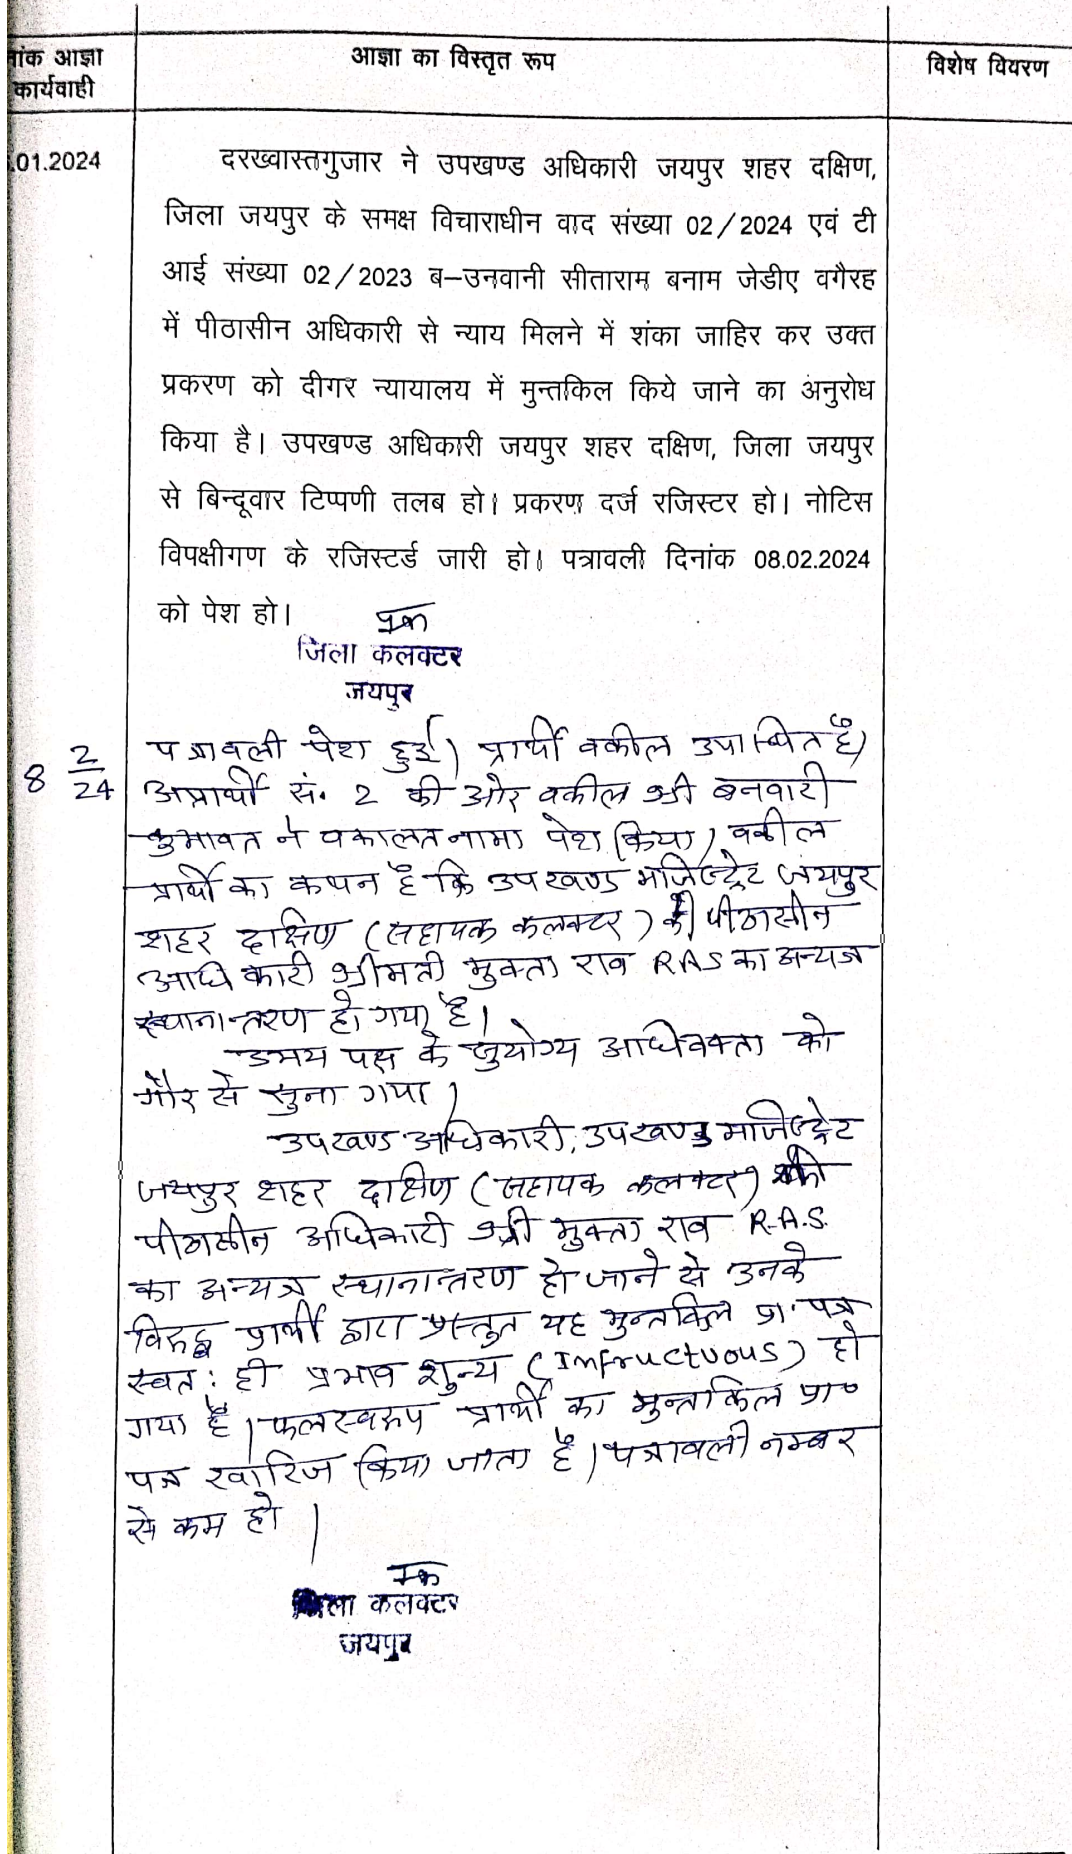 नांक आज्ञा
कार्यवाही
आज्ञा का विस्तृत रूप
विशेष विवरण
.01.2024
दरख्वास्तगुजार ने उपखण्ड अधिकारी जयपुर शहर दक्षिण,
जिला जयपुर के समक्ष विचाराधीन वाद संख्या 02/2024 एवं टी
आई संख्या 02/2023 ब–उनवानी सीताराम बनाम जेडीए वगैरह
में पीठासीन अधिकारी से न्याय मिलने में शंका जाहिर कर उक्त
प्रकरण को दीगर न्यायालय में मुन्तकिल किये जाने का अनुरोध
किया है। उपखण्ड अधिकारी जयपुर शहर दक्षिण, जिला जयपुर
से बिन्दूवार टिप्पणी तलब हो। प्रकरण दर्ज रजिस्टर हो। नोटिस
विपक्षीगण के रजिस्टर्ड जारी हो। पत्रावली दिनांक 08.02.2024
को पेश हो।
जिला कलक्टर
जयपुर
8 2/24
पत्रावली पेश हुई। प्रार्थी वकील उपस्थित है।
अप्रार्थी सं. 2 की ओर वकील श्री बनवारी
कुमावत ने वकालतनामा पेश किया। वकील
प्रार्थी का कथन है कि उपखण्ड मजिस्ट्रेट जयपुर
शहर दक्षिण (सहायक कलक्टर) की पीठासीन
अधिकारी श्रीमती मुक्ता राव RAS का अन्यत्र
स्थानान्तरण हो गया है।
उभय पक्ष के सुयोग्य अधिवक्ता को
गौर से सुना गया।
उपखण्ड अधिकारी, उपखण्ड मजिस्ट्रेट
जयपुर शहर दक्षिण (सहायक कलक्टर) की
पीठासीन अधिकारी श्री मुक्ता राव R.A.S.
का अन्यत्र स्थानान्तरण हो जाने से उनके
विरुद्ध प्रार्थी द्वारा प्रस्तुत यह मुन्तकिल प्रा. पत्र
स्वत: ही प्रभाव शून्य (Infructuous) हो
गया है। फलस्वरूप प्रार्थी का मुन्तकिल प्रा०
पत्र खारिज किया जाता है। पत्रावली नम्बर
से कम हो।
जिला कलक्टर
जयपुर